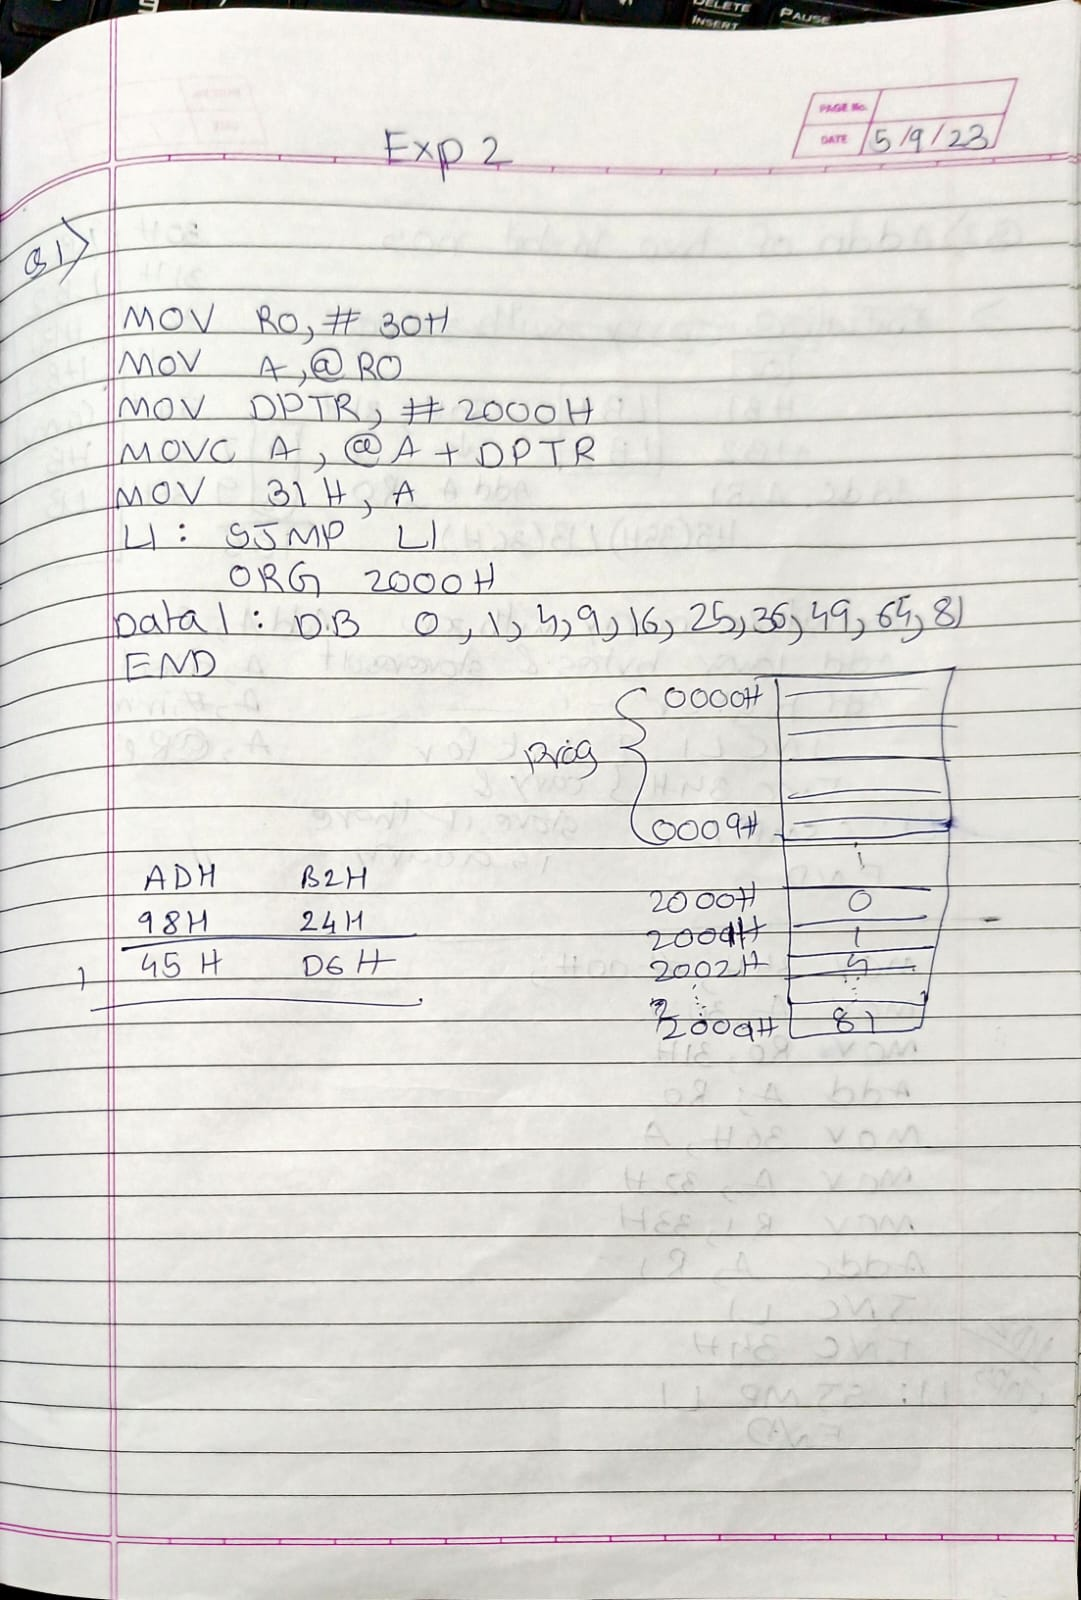 DELETE
INSERT
PAUSE
PAGE No.
DATE 5/9/23
Exp 2
Q1)
MOV R0, # 30H
MOV A, @ R0
MOV DPTR, # 2000H
MOVC A, @ A + DPTR
MOV 31H, A
L1: SJMP L1
ORG 2000H
Data1: DB 0, 1, 4, 9, 16, 25, 36, 49, 64, 81
END
prog
0000H
0009H
2000H 0
2001H 1
2002H 4
2009H 81
ADH B2H
98H 24H
1 45H D6H